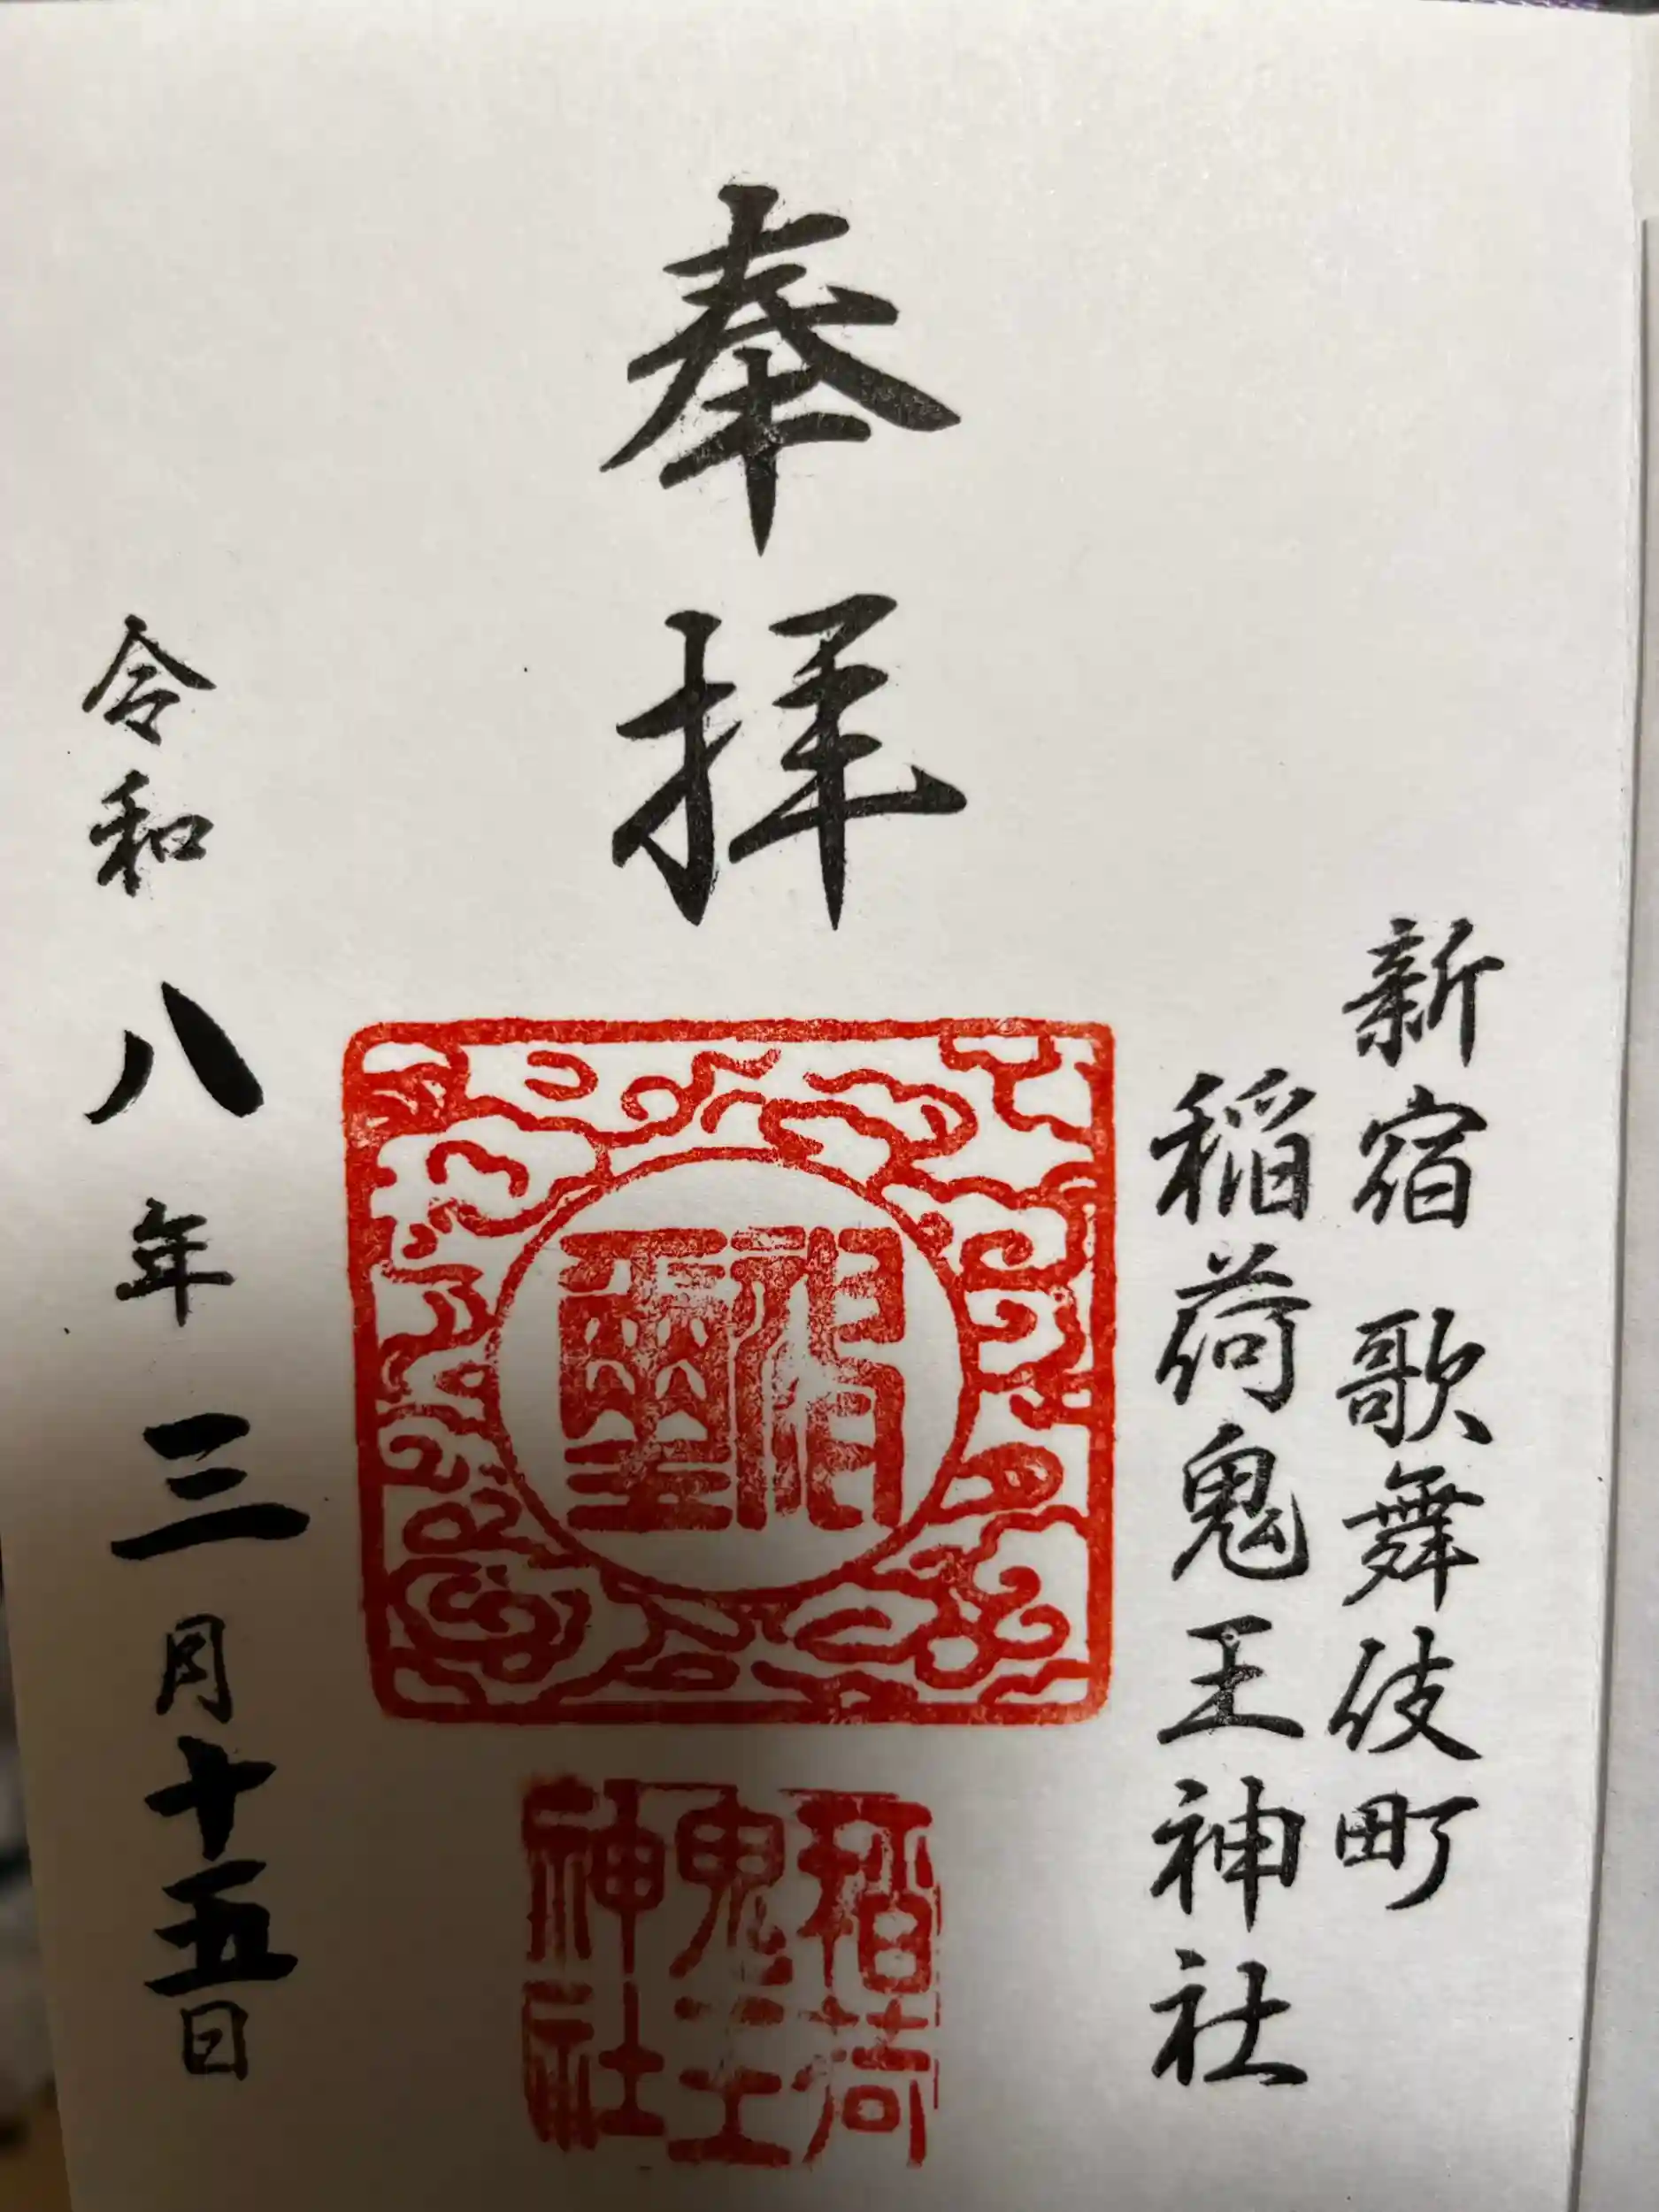 新宿 歌舞伎町
稲荷鬼王神社
奉拝
神璽
稲荷
鬼王
神社
令和八年三月十五日